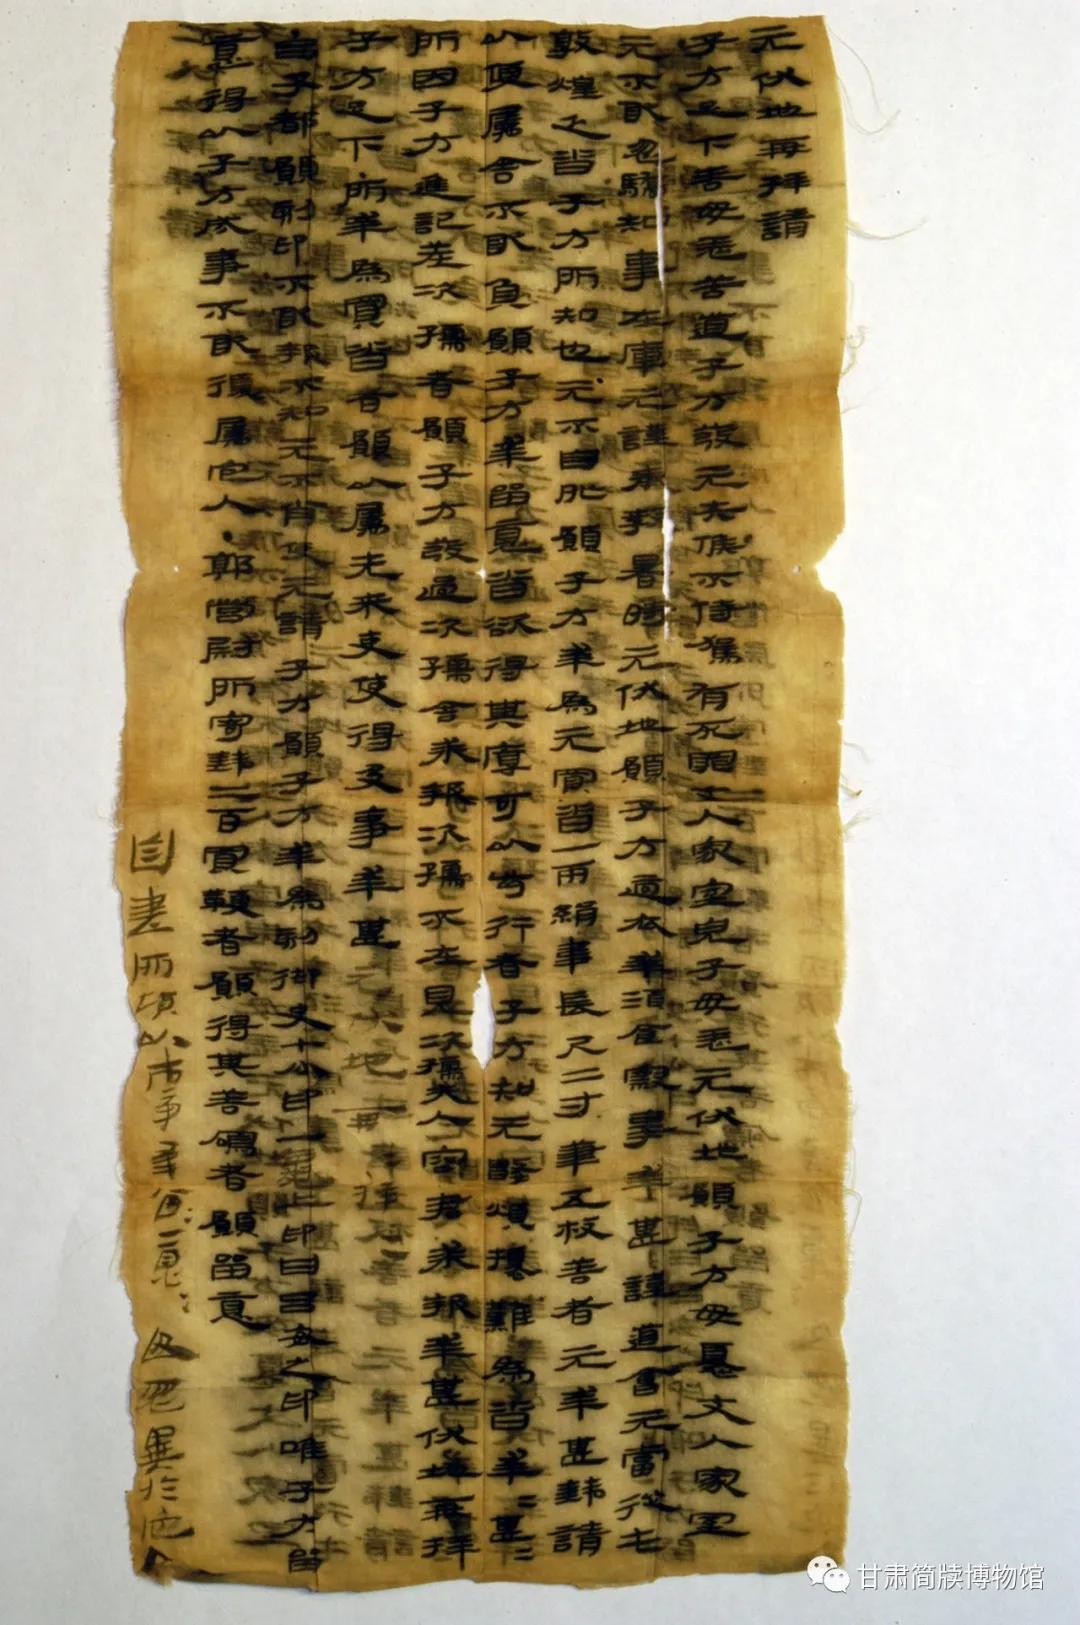 元伏地再拜請
子方足下善毋恙苦道子方發元失候不侍駕有死罪丈人家室兒子毋恙元伏地願子方毋憂丈人家室
元不敢忽驕知事在庫元謹奉教暑時元伏地願子方適衣幸酒食察事幸甚謹道會元當從屯
敦煌乏沓子方所知也元不自外願子方幸為元買沓一兩絹韋長尺二寸筆五枚善者元幸甚錢請
以便屬舍不敢負願子方幸留意沓欲得其厚可以步行者子方知元數煩擾難為沓幸=甚=
所因子方進記差次孺者願子方發過次孺舍求報次孺不在見次孺夫人容君求報幸甚伏地再拜
子方足下所幸為買沓者願以屬先來吏使得及事幸甚元伏地再拜再拜
呂子都願刻印不敢報不知元不肖使元請子方願子方幸為刻御史七分印一龜上印曰呂安之印唯子方留
意得以子方成事不敢復屬它人·郭營尉所寄錢二百買鞭者願得其善鳴者願留意
自書所願以市事幸留=意=毋忽異於它人
甘肃简牍博物馆